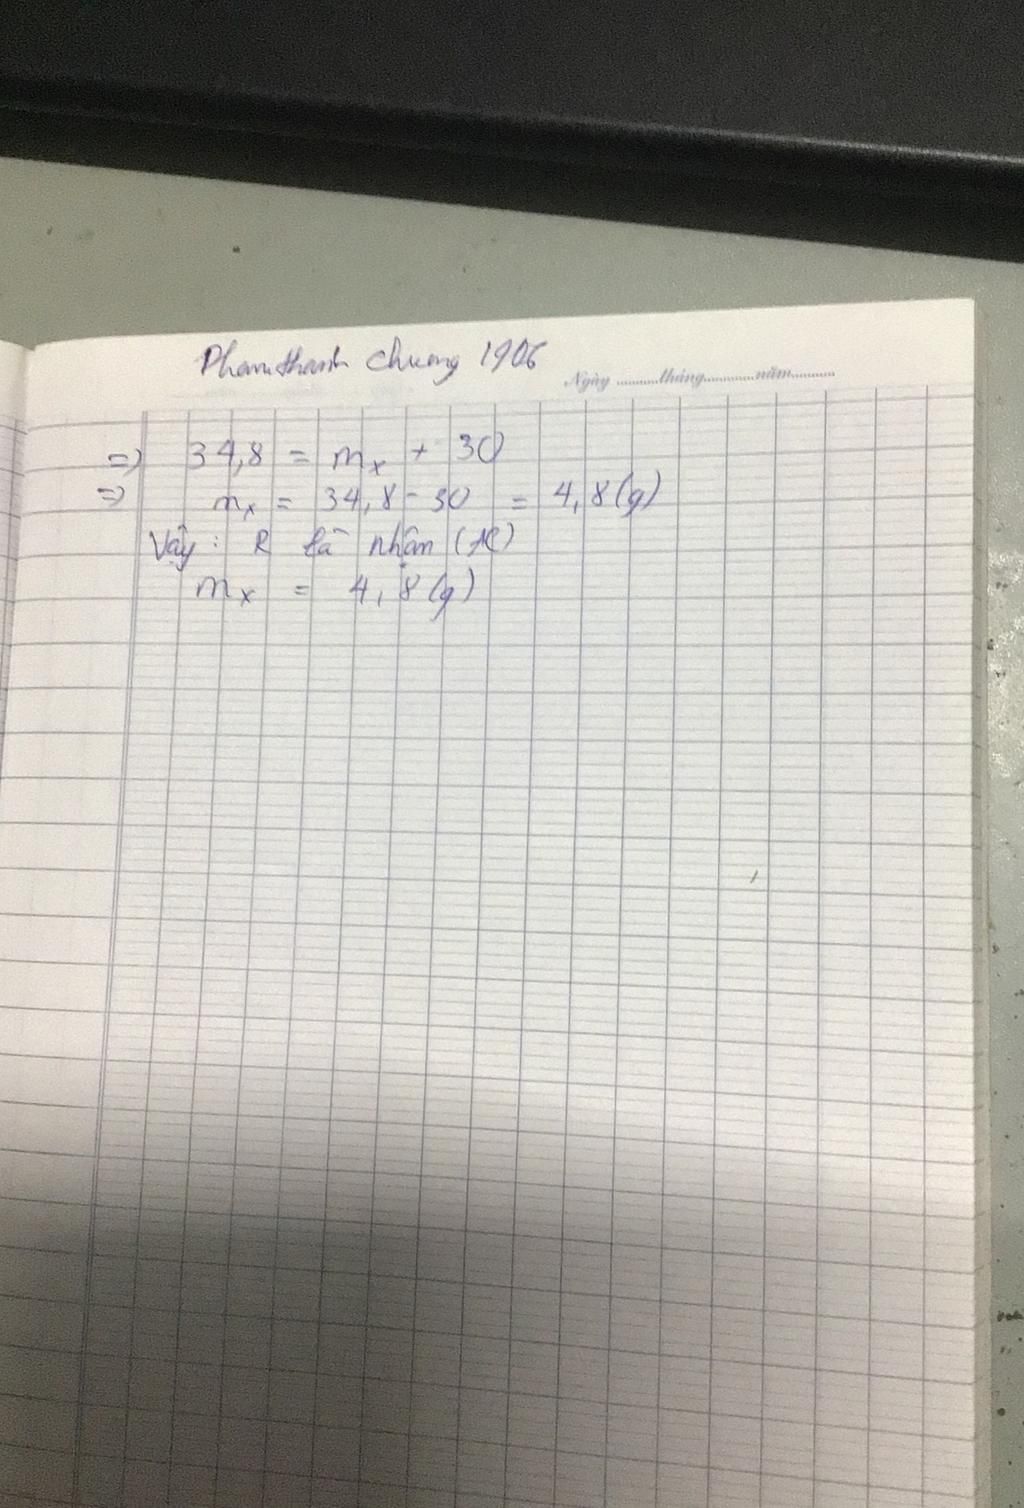 Phamthanh Chương 1906
Ngày ...........tháng.............năm...........
=> 34,8 = mx + 30
=> mx = 34,8 - 30 = 4,8 (g)
Vậy : R là nhôm (Al)
mx = 4,8 (g)